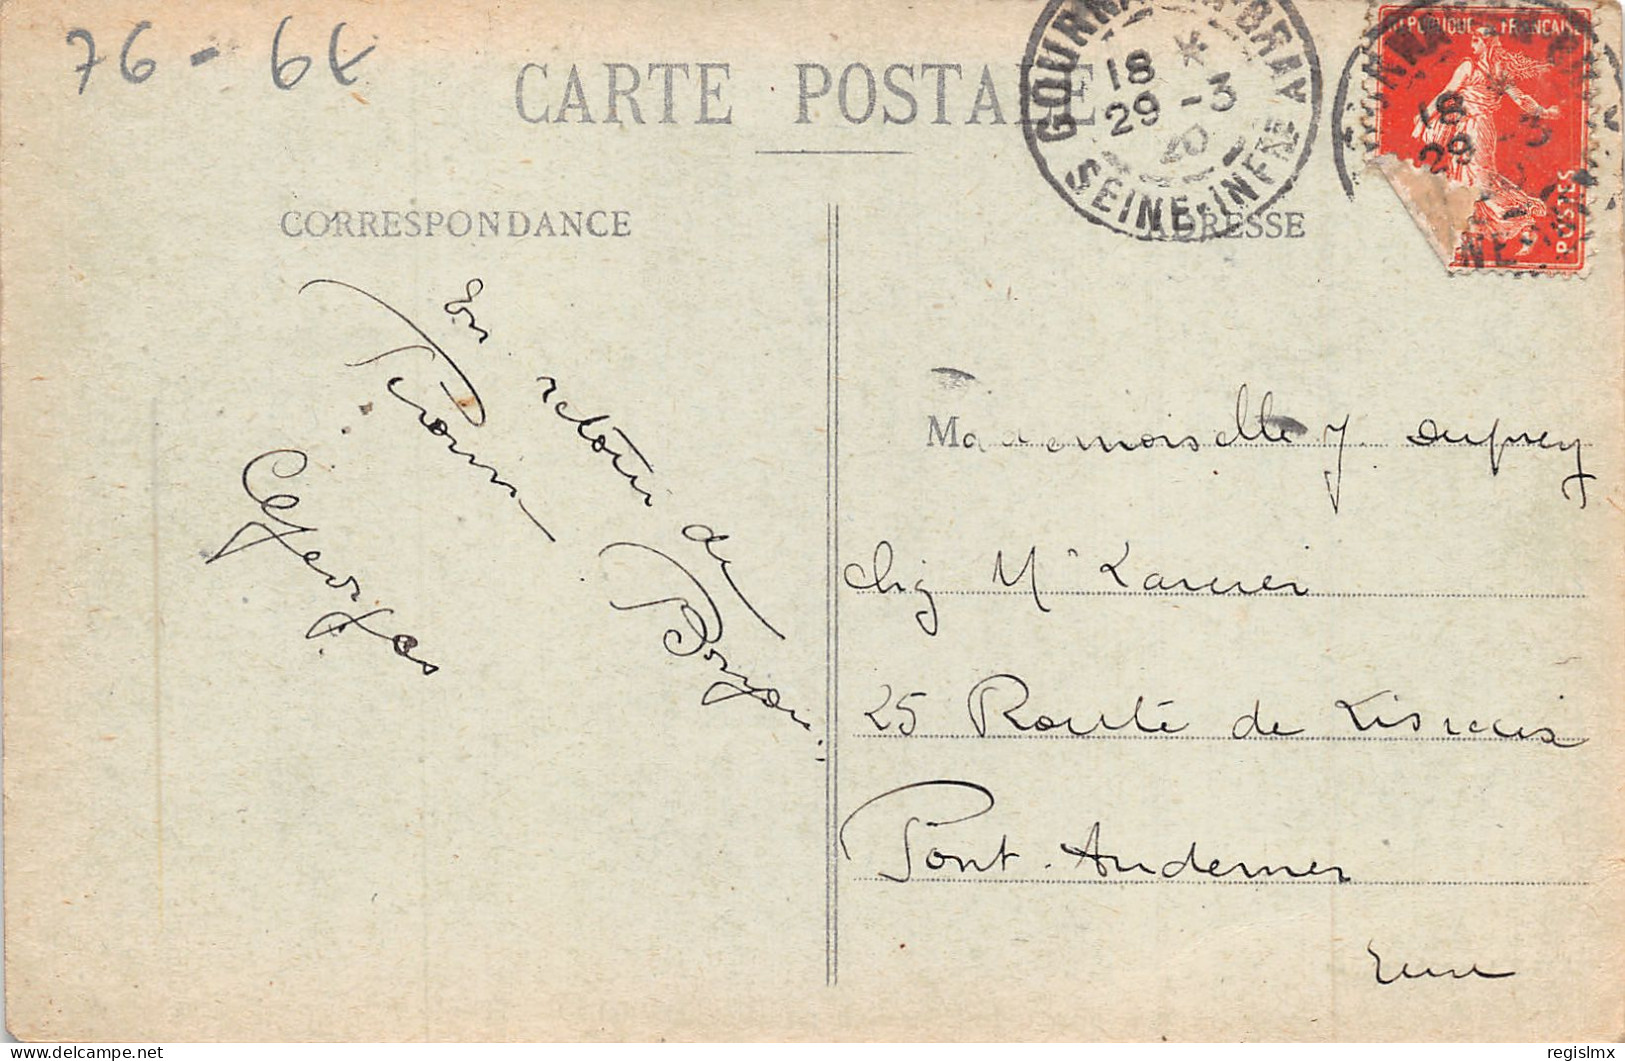 76 - 6€
CARTE POSTALE
GOURNAY-EN-BRAY
18 *
29 -3
20
SEINE-INFRE
REPUBLIQUE FRANCAISE
POSTES
18 *
29 -3
CORRESPONDANCE
ADRESSE
En retour de
Georges
Mademoiselle J. Duprey
chez Mr
25 Route de Lisieux
Pont-Audemer
Eure
delcampe.net
regislmx